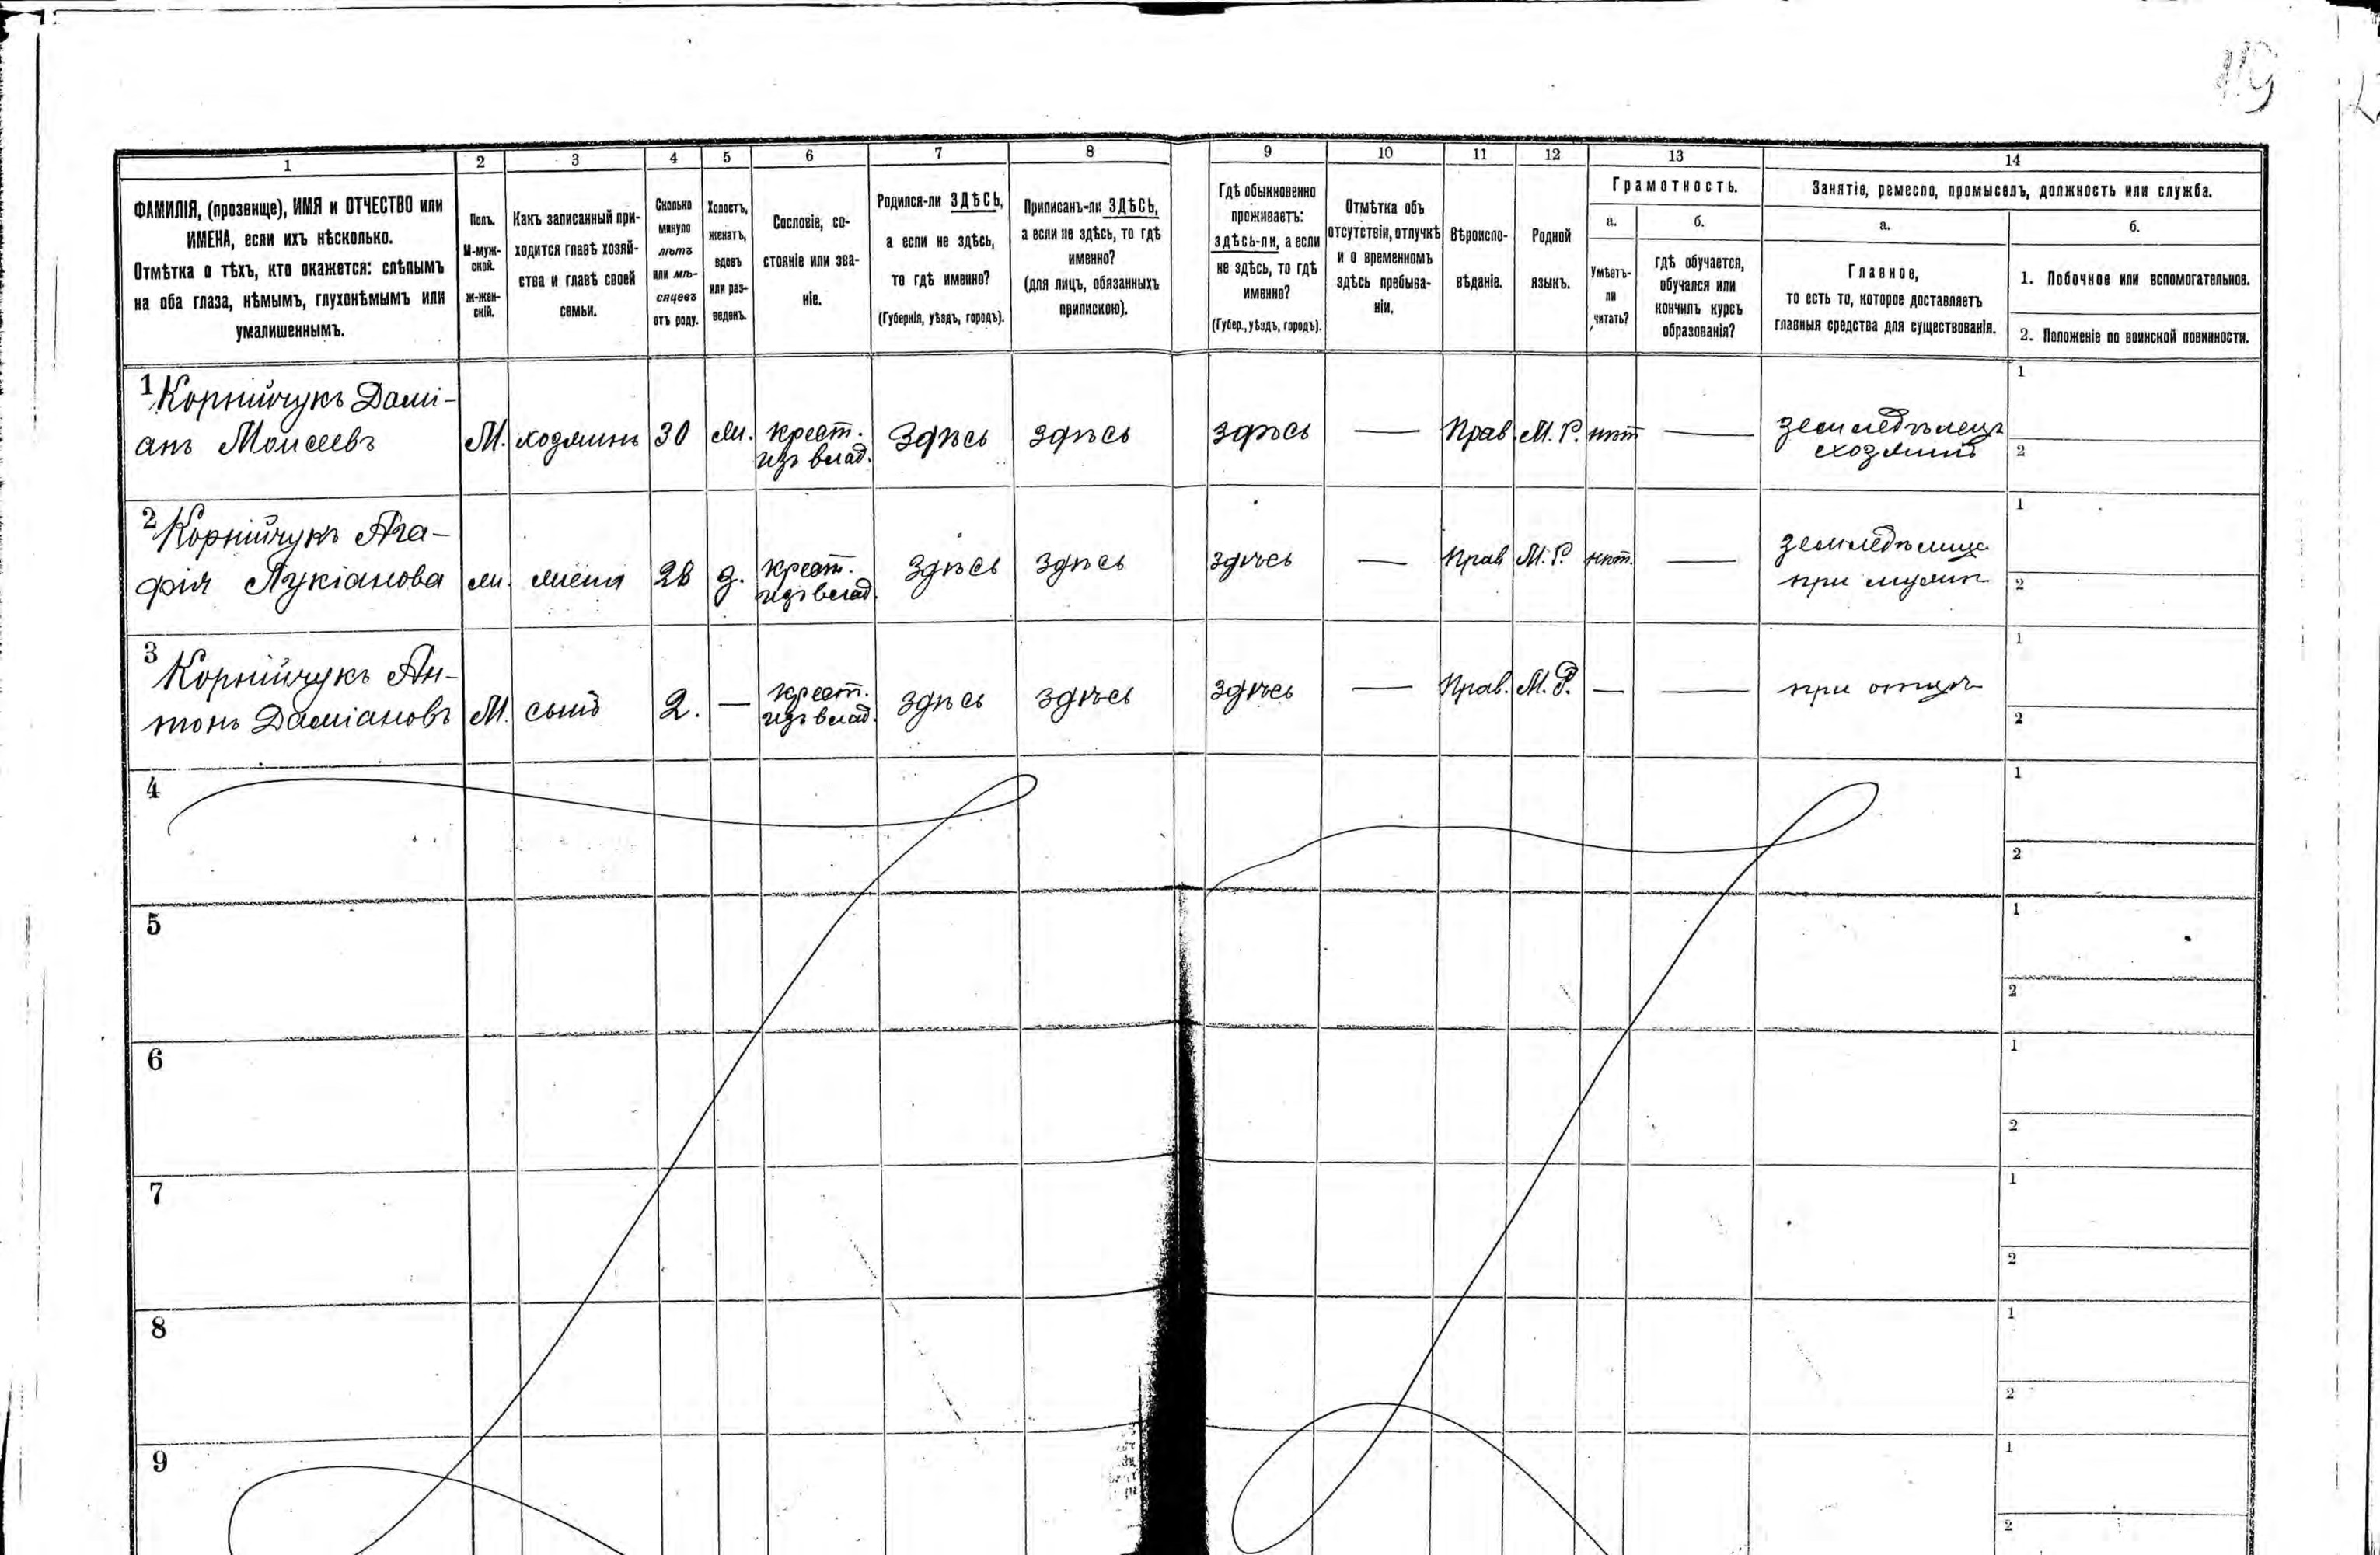 119
1
2
3
4
5
6
7
8
9
10
11
12
13
14
ФАМИЛІЯ, (прозвище), ИМЯ и ОТЧЕСТВО или
ИМЕНА, если ихъ нѣсколько.
Отмѣтка о тѣхъ, кто окажется: слѣпымъ
на оба глаза, нѣмымъ, глухонѣмымъ или
умалишеннымъ.
Полъ.
М-муж-
ской.
Ж-жен-
скій.
Какъ записанный при-
ходится главѣ хозяй-
ства и главѣ своей
семьи.
Сколько
минуло
лѣтъ
или мѣ-
сяцевъ
отъ роду.
Холостъ,
женатъ,
вдовъ
или раз-
веденъ.
Сословіе, со-
стояніе или зва-
ніе.
Родился-ли ЗДѢСЬ,
а если не здѣсь,
то гдѣ именно?
(Губернія, уѣздъ, городъ).
Приписанъ-ли ЗДѢСЬ,
а если не здѣсь, то гдѣ
именно?
(для лицъ, обязанныхъ
припискою).
Гдѣ обыкновенно
проживаетъ:
здѣсь-ли, а если
не здѣсь, то гдѣ
именно?
(Губер., уѣздъ, городъ).
Отмѣтка объ
отсутствіи, отлучкѣ
и о временномъ
здѣсь пребыва-
ніи.
Вѣроиспо-
вѣданіе.
Родной
языкъ.
Грамотность.
а.
Умѣетъ-
ли
читать?
б.
гдѣ обучается,
обучался или
кончилъ курсъ
образованія?
Занятіе, ремесло, промыселъ, должность или служба.
а.
Главное,
то есть то, которое доставляетъ
главныя средства для существованія.
б.
1. Побочное или вспомогательное.
2. Положеніе по воинской повинности.
1 Корнійчукъ Дамі-
анъ Моисеевъ
М.
хозяинъ
30
ж.
крест.
изъ влад.
Здѣсь
здѣсь
здѣсь
—
Прав.
М. Р.
нѣт
—
земледѣлецъ
хозяинъ
1
2
2 Корнійчукъ Ага-
фія Лукіанова
ж.
жена
28
з.
крест.
изъ влад.
Здѣсь
здѣсь
здѣсь
—
Прав
М. Р.
нѣт.
—
земледѣлица
при мужѣ
1
2
3 Корнійчукъ Ан-
тонъ Даміановъ
М.
сынъ
2.
—
крест.
изъ влад.
здѣсь
здѣсь
здѣсь
—
Прав.
М. Р.
—
—
при отцѣ
1
2
4
1
2
5
1
2
6
1
2
7
1
2
8
1
2
9
1
2